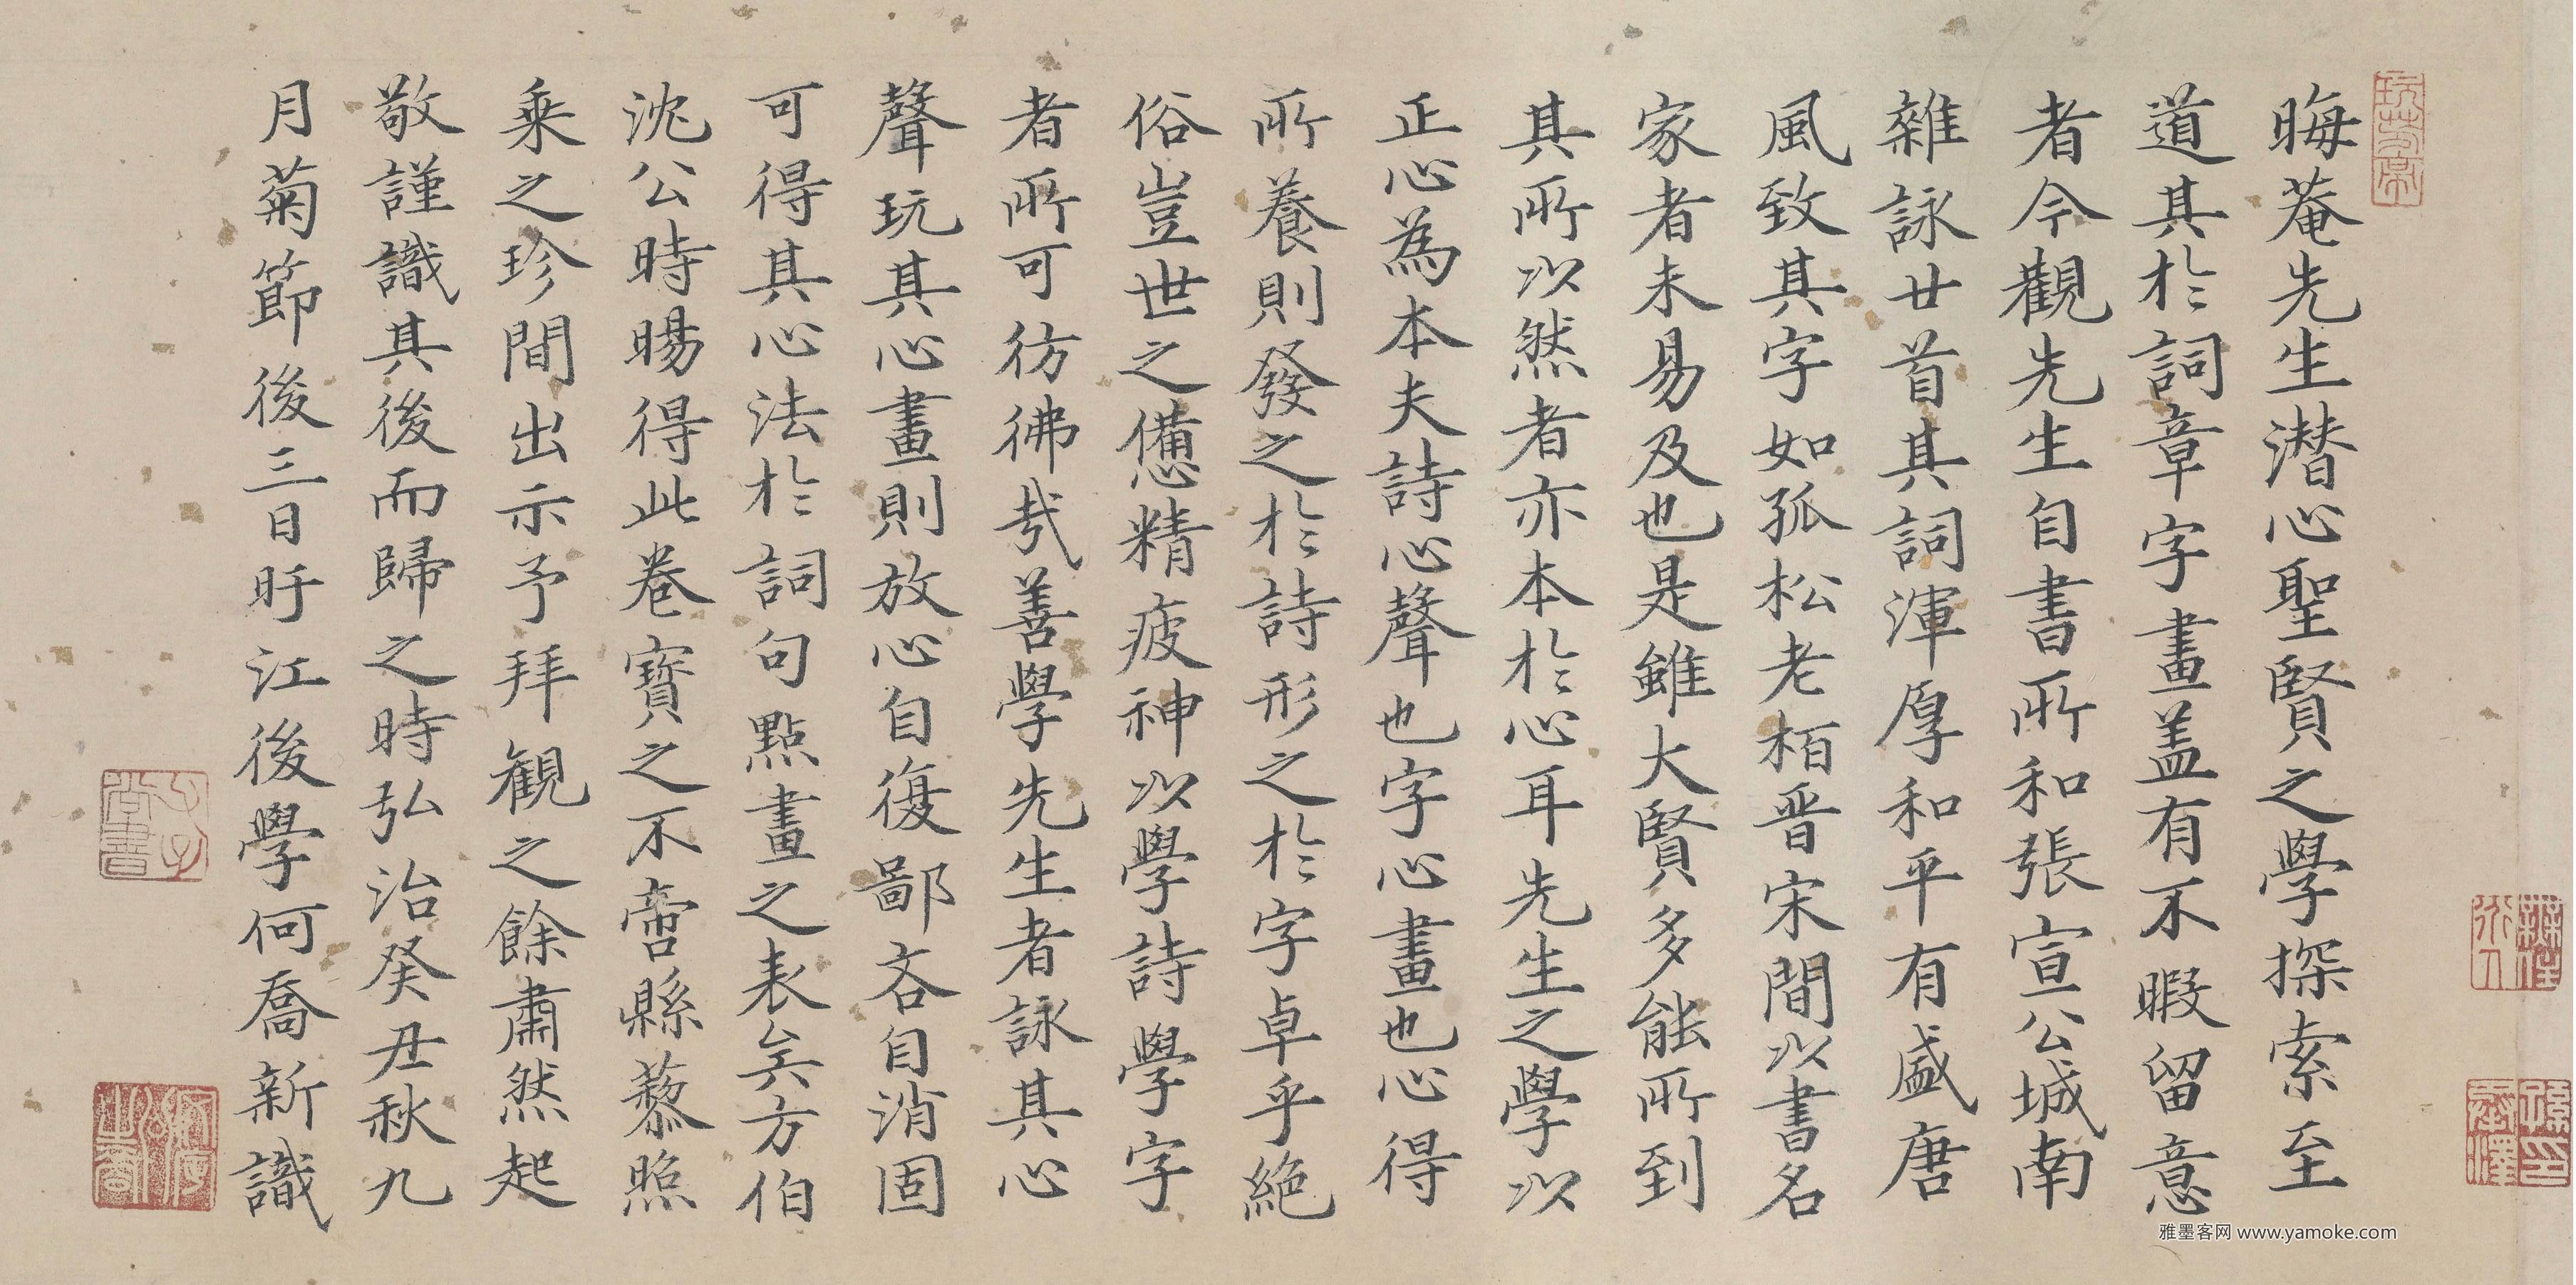 晦菴先生潜心聖賢之學探索至
道其於詞章字畫盖有不暇留意
者今觀先生自書所和張宣公城南
雜詠廿首其詞渾厚和平有盛唐
風致其字如孤松老栢晋宋間以書名
家者未易及也是雖大賢多能所到
其所以然者亦本於心耳先生之學以
正心為本夫詩心聲也字心畫也心得
所養則發之於詩形之於字卓乎絶
俗豈世之憊精疲神以學詩學字
者所可彷彿㢤善學先生者詠其心
聲玩其心畫則放心自復鄙吝自消固
可得其心法於詞句點畫之表矣方伯
沈公時暘得此卷寳之不啻縣藜照
乘之珍間出示予拜觀之餘肅然起
敬謹識其後而歸之時弘治癸丑秋九
月菊節後三日盱江後學何喬新識
玩芳亭
雅墨客网 www.yamoke.com